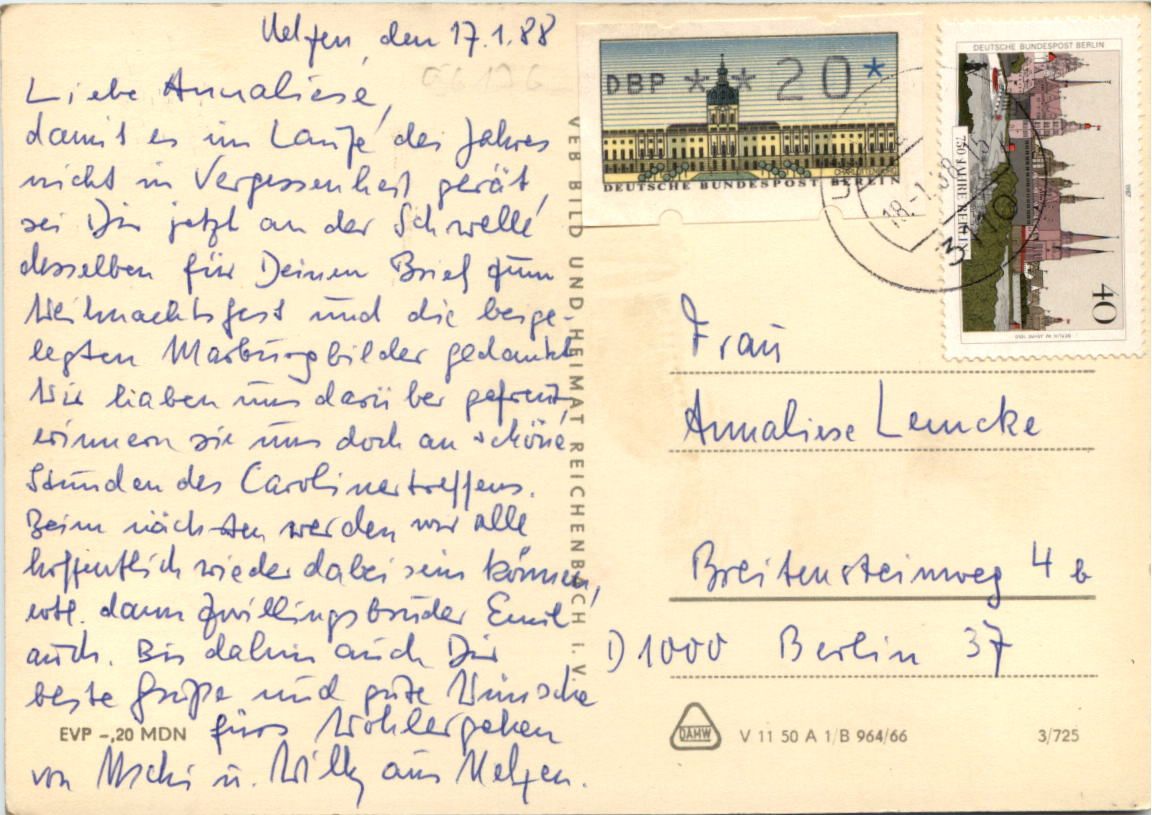 Uelzen, den 17.1.88
Liebe Annaliese,
damit es im Laufe des Jahres
nicht in Vergessenheit gerät,
sei Dir jetzt an der Schwelle
desselben für Deinen Brief zum
Weihnachtsfest und die beige-
legten Marburgbilder gedankt.
Wir haben uns darüber gefreut,
erinnern sie uns doch an schöne
Stunden des Carolinertreffens.
Beim nächsten werden wir alle
hoffentlich wieder dabei sein können,
evtl. dann Zwillingsbruder Emil
auch. Bis dahin auch Dir
beste Grüße und gute Wünsche
fürs Wohlergehen
von Uschi u. Willy aus Uelzen.
EVP -,20 MDN
VEB BILD UND HEIMAT REICHENBACH I. V.
DBP ** 20*
DEUTSCHE BUNDESPOST BERLIN
DEUTSCHE BUNDESPOST BERLIN
750 JAHRE BERLIN
1987
40
18.-1.88-15
3110
Frau
Annaliese Lemcke
Breitensteinweg 4 b
D 1000 Berlin 37
DAHW
V 11 50 A 1/B 964/66
3/725